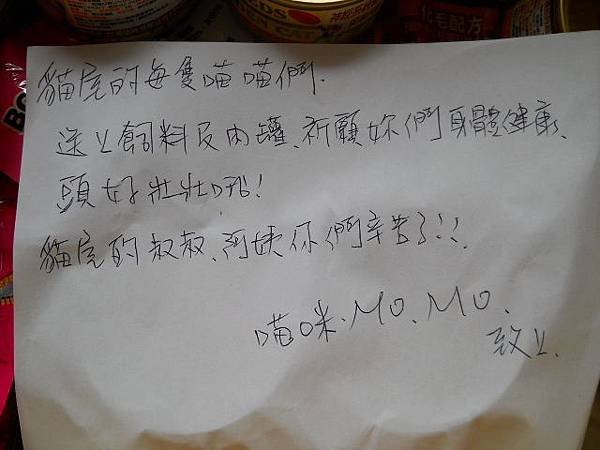 化毛配方
貓屋的每隻喵喵們.
送上飼料及肉罐、祈願妳們身體健康、
頭好壯壯哦!
貓屋的叔叔、阿姨你們辛苦了!!.
喵咪.MO.MO.
致上.